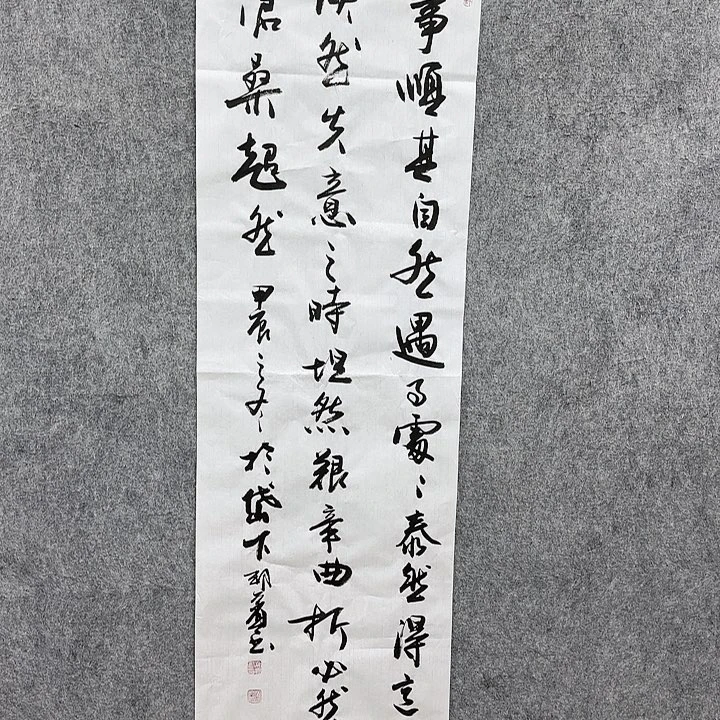 事順其自然遇事處〻泰然得意
淡然失意之時坦然艱辛曲折必然
滄桑超然 甲辰之冬於岱下